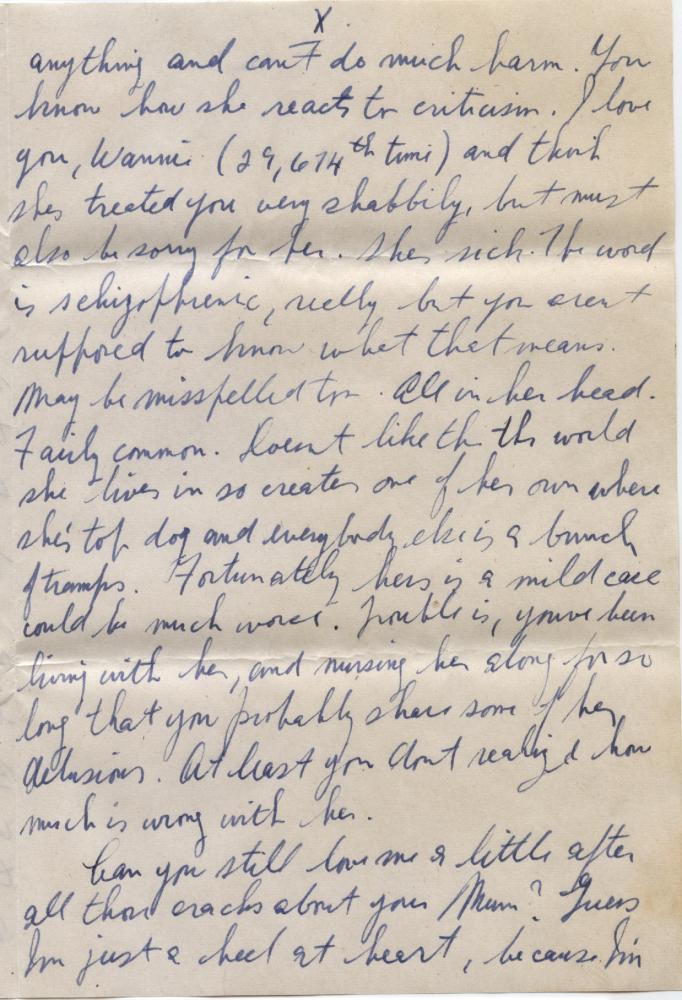 X
anything and can't do much harm. You
know how she reacts to criticism. I love
you, Wannie (29,674th time) and think
shes treated you very shabbily, but must
also be sorry for her. Shes sick. The word
is schizophrenic, really but you arent
supposed to know what that means.
May be misspelled too. All in her head.
Fairly common. Doesnt like the the world
she lives in so creates one of her own where
she's top dog and everybody else is a bunch
of tramps. Fortunately hers is a mild case
could be much worse. Trouble is, youve been
living with her, and nursing her along for so
long that you probably share some of her
delusions. At least you dont realize how
much is wrong with her.
Can you still love me a little after
all those cracks about your Mum? Guess
Im just a heel at heart, because Im